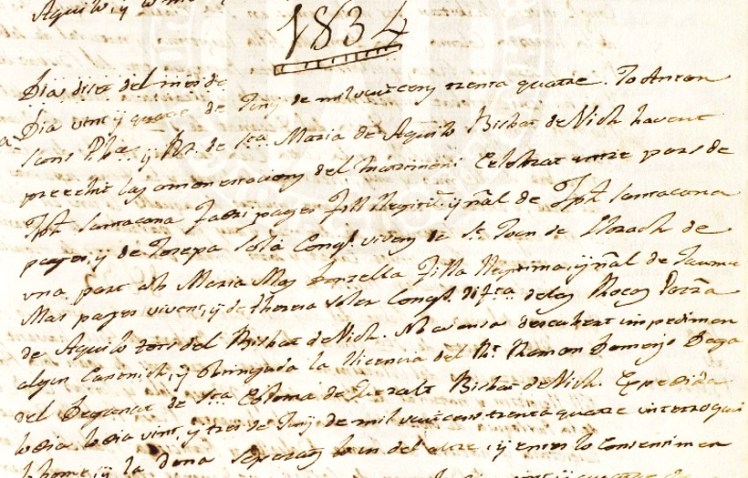 Aguiló y
1834
Dia disset del mes de
Dia vint, y quatre de Juny de mil vuit cens trenta quatre. Jo Anton
Pbre. y Rr. de Sta. Maria de Aguiló Bisbat de Vich havent
precehit las amonestacions del Matrimoni Celebrat entre pars de
Jph Santacana Fadri pages Fill llegitim, y nal de Jph Santacana
pages, y de Josepa Solá Conjs. vivens de St. Joan de Llorach de
una part ab Maria Mas Donzella Filla llegitima, y nal de Jaume
Mas pages vivent, y de Theresa Soler Conjs. difta. de las Rocas Parrª
de Aguiló tots del Bisbat de Vich. No havense descubert impedimen
algun Canonich, y obtinguda la llicencia del Rt. Ramon Domenjo Dega
del Deganat de Sta. Coloma de Queralt Bisbat de Vich. Expedida
lo dia lo dia vint, y tres de Juny de mil vuit cens trenta quatre interroguí
lo home, y la dona separats lo un del altre, y entes lo Consentimen